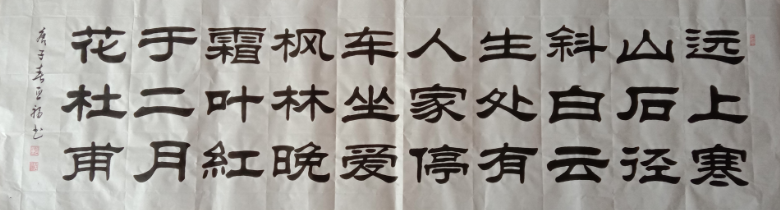 远上寒
山石径
斜白云
生处有
人家停
车坐爱
枫林晚
霜叶紅
于二月
花杜甫
庚子春亚书